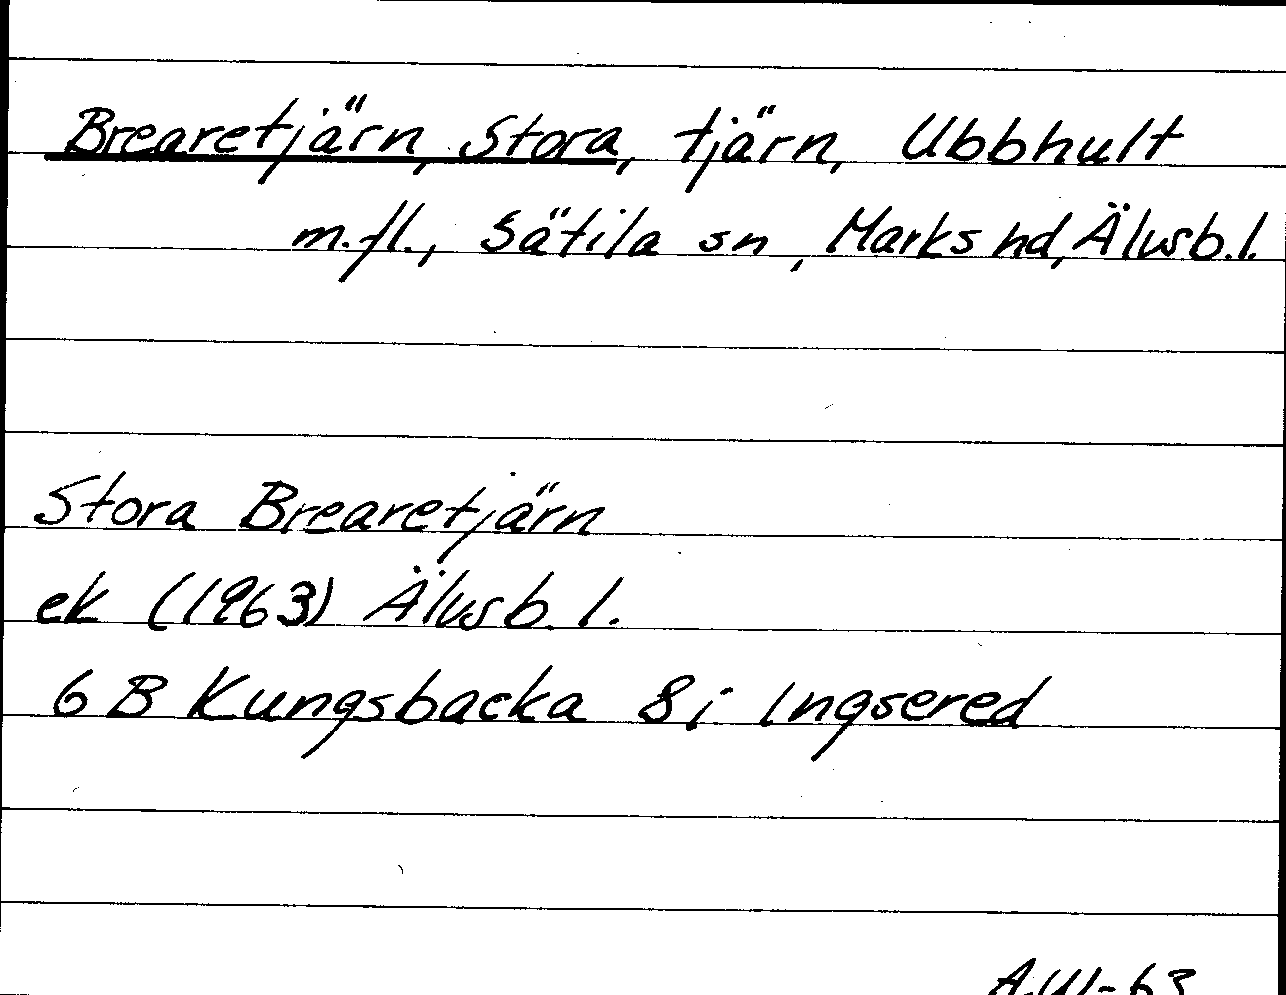 Brearetjärn, Stora, tjärn, Ubbhult
m.fl., Sätila sn, Marks hd, Älvsb.l.
Stora Brearetjärn
ek (1963) Älvsb. l.
6 B Kungsbacka 8i Ingsered